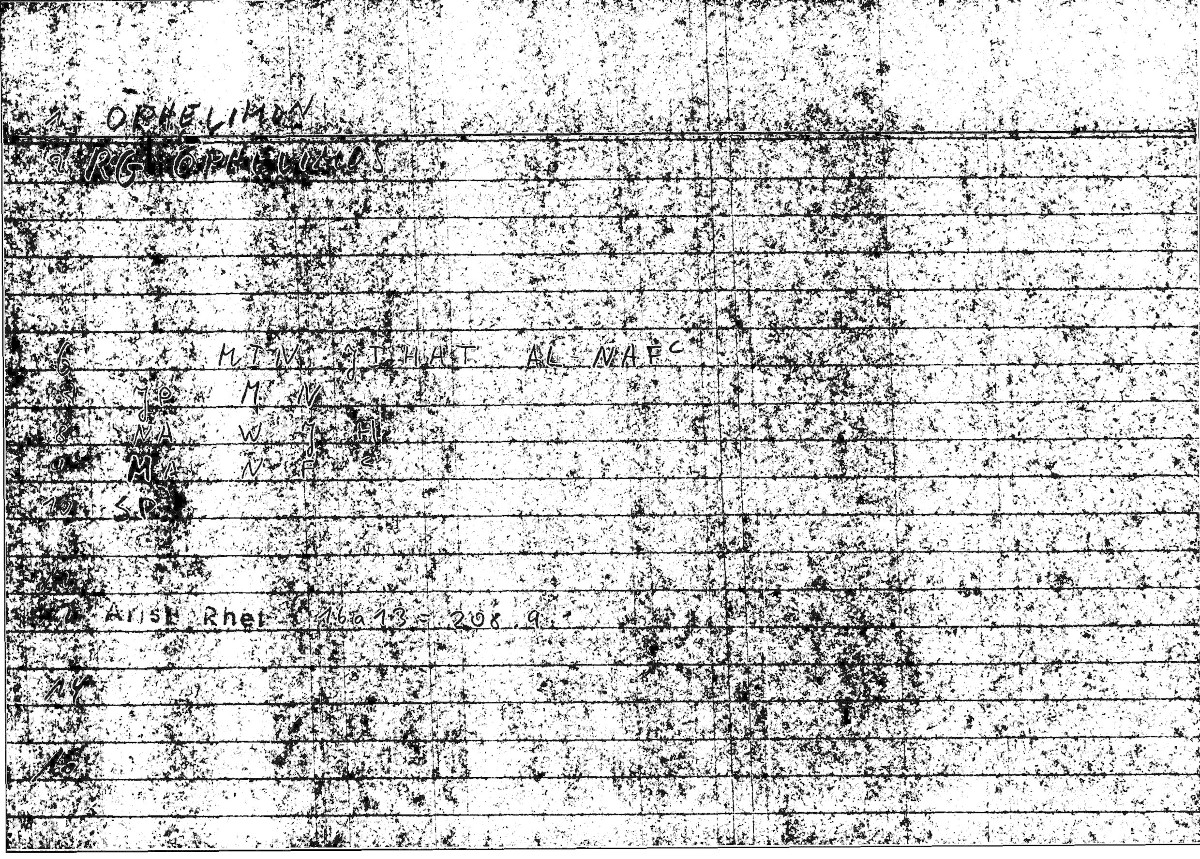 1 OPHELIMON
2 RG OPHELIMOS
6 MIN JIHAT AL-NAFC
7 JP M N
8 MA W J H
9 MA N F C
10 SP
12 Arist Rhet 16a13 = 208.9
14
15